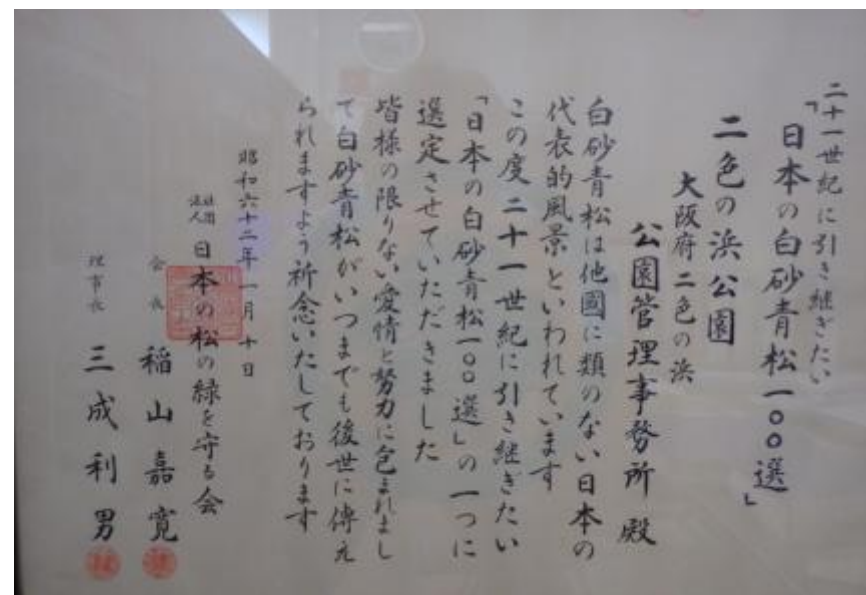 二十一世紀に引き継ぎたい
「日本の白砂青松一〇〇選」
二色の浜公園
大阪府 二色の浜
公園管理事務所 殿
白砂青松は他國に類のない日本の
代表的風景といわれています
この度二十一世紀に引き継ぎたい
「日本の白砂青松一〇〇選」の一つに
選定させていただきました
皆様の限りない愛情と努力に包まれまし
て白砂青松がいつまでも後世に傳え
られますよう祈念いたしております
昭和六十二年一月十日
社団法人 日本の松の緑を守る会
会長 稲山嘉寛
理事長 三成利男